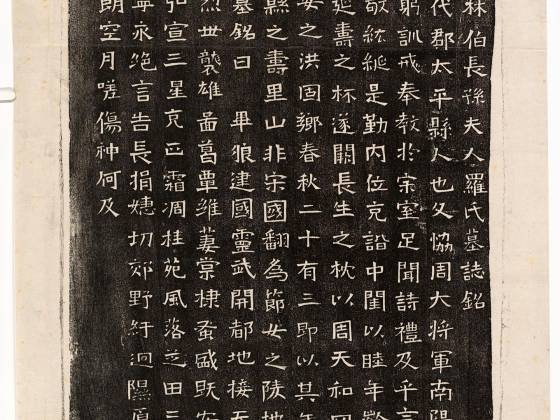 林伯長孫夫人羅氏墓誌銘
代郡太平縣人也父協周大將軍南陽
躬訓戒奉教於宗室足聞詩禮及乎言
敬紘綖是勤內位克諧中閨以睦年齡
延壽之杯遂闕長生之枕以周天和四
安之洪固鄉春秋二十有三即以其年
縣之壽里山非宋國翻為節女之陵地
墓銘曰 畢狼建國靈武開都地接
烈世襲雄啚葛覃維萋棠棣蚤盛旣安
弘宣三星克正霜凋桂苑風落芝田三
寧永絕言告長捐悽切郊野紆迴隰原
朗空月嗟傷神何及